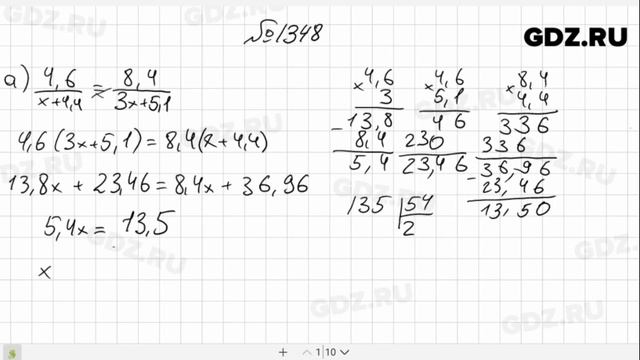 №1348
GDZ.RU
а) 4,6/(x+4,4) = 8,4/(3x+5,1)
4,6(3x+5,1)=8,4(x+4,4)
13,8x + 23,46 = 8,4x + 36,96
5,4x = 13,5
x
× 4,6
3
13,8
− 8,4
5,4
× 4,6
5,1
46
230
23,46
× 8,4
4,4
336
336
36,96
− 23,46
13,50
135 54
2
+ 1 | 10